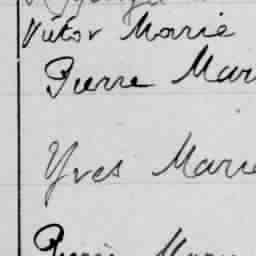 Victor Marie
Pierre Mar
Yves Marie
Pierre Marie